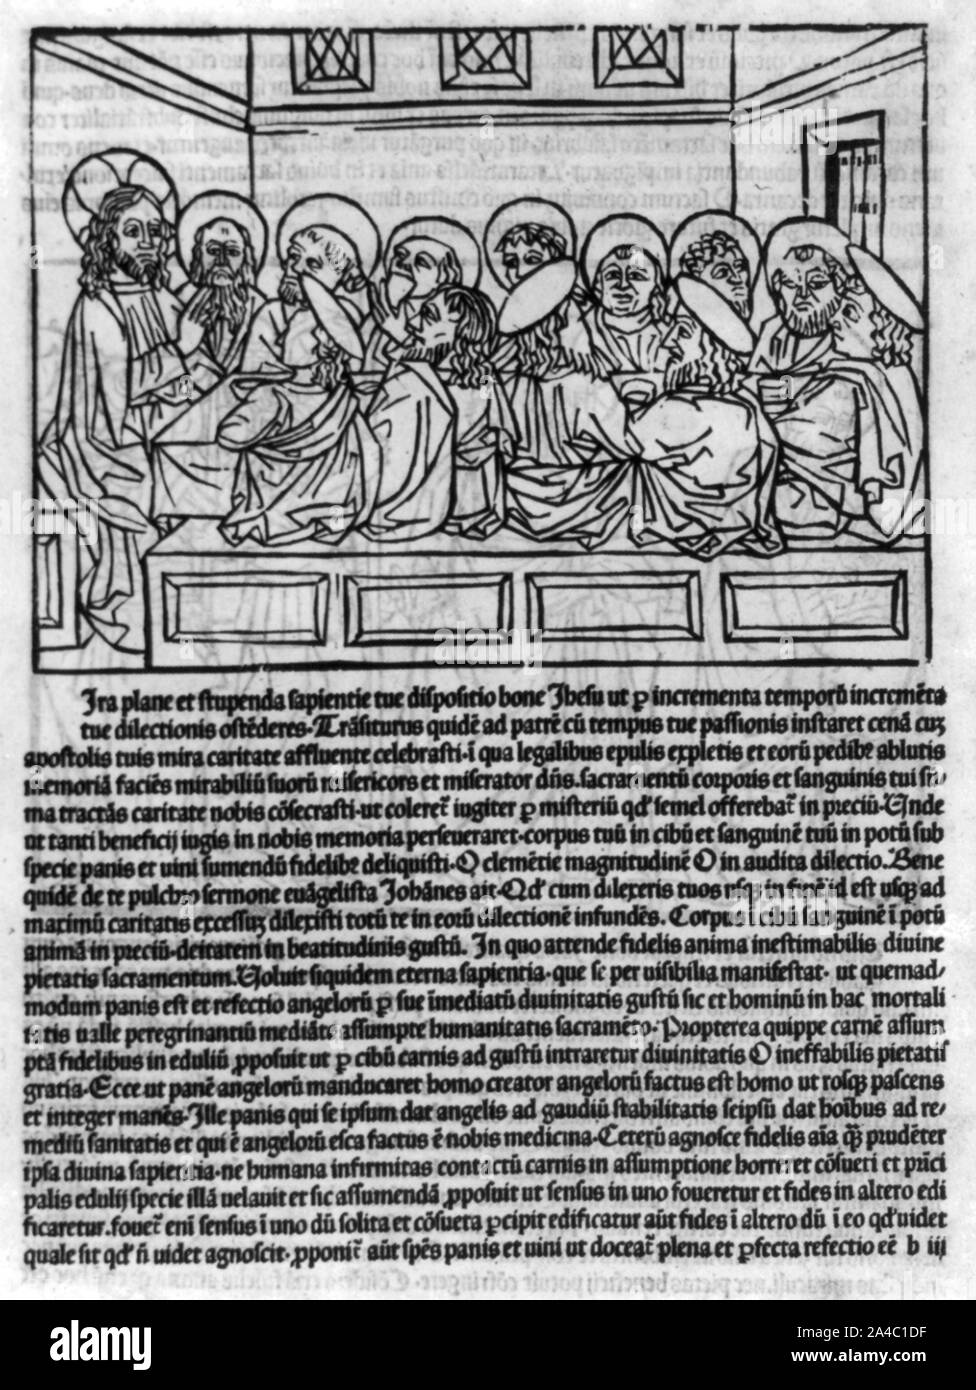 Ira plane et stupenda sapientie tue dispositio bone Jhesu ut ꝑ incrementa temporū incremēta
tue dilectionis ostēderes. Trāsiturus quidē ad patrē cū tempus tue passionis instaret cenā cuꝫ
apostolis tuis mira caritate affluente celebrasti. ī qua legalibus epulis expletis et eorū pedibꝰ ablutis
memoriā faciēs mirabiliū suorū misericors et miserator dn̄s. sacramentū corporis et sanguinis tui
ma tractās caritate nobis cōsecrasti. ut coleret᷑ iugiter ꝑ misteriū qd' semel offerebat᷑ in preciū. Unde
ut tanti beneficij iugis in nobis memoria perseueraret. corpus tuū in cibū et sanguinē tuū in potū sub
specie panis et uini sumendū fidelibꝰ deliquisti. O clemētie magnitudinē O in audita dilectio. Bene
quidē de te pulchro sermone euāgelista Johānes ait. Qd' cum dilexeris tuos usqꝫ in finē id est usqꝫ ad
maximū caritatis excessuꝫ dilexisti totū te in eorū dilectionē infundēs. Corpus ī cibū sanguinē ī potū
animā in preciū. deitatem in beatitudinis gustū. In quo attende fidelis anima inestimabilis diuine
pietatis sacramentum. Uoluit siquidem eterna sapientia. que se per uisibilia manifestat. ut quemad/
modum panis est et refectio angelorū ꝑ sue īmediatū diuinitatis gustū sic et hominū in hac mortali
tatis ualle peregrinantiū mediāte assumpte humanitatis sacramēto. Propterea quippe carnē assum
ptā fidelibus in eduliū ꝓposuit ut ꝑ cibū carnis ad gustū intraretur diuinitatis O ineffabilis pietatis
gratia. Ecce ut panē angelorū manducaret homo creator angelorū factus est homo ut rosqꝫ pascens
et integer manēs. Ille panis qui se ipsum dat angelis ad gaudiū stabilitatis seipsū dat hoībus ad re/
mediū sanitatis et qui ē angelorū esca factus ē nobis medicina. Ceterū agnosce fidelis aīa qꝫ prudēter
ipsa diuina sapientia. ne humana infirmitas contactū carnis in assumptione horreret cōsueti et prīci
palis edulij specie illā uelauit et sic assumendā ꝓposuit ut sensus in uno foueretur et fides in altero edi
ficaretur. fouet᷑ enī sensus ī uno dū solita et cōsueta ꝑcipit edificatur aūt fides ī altero dū ī eo qd' uidet
quale sit qd' n̄ uidet agnoscit. ꝓponit᷑ aūt spēs panis et uini ut doceat᷑ plena et ꝑfecta refectio eē b iij
alamy
Image ID: 2A4C1DF
www.alamy.com